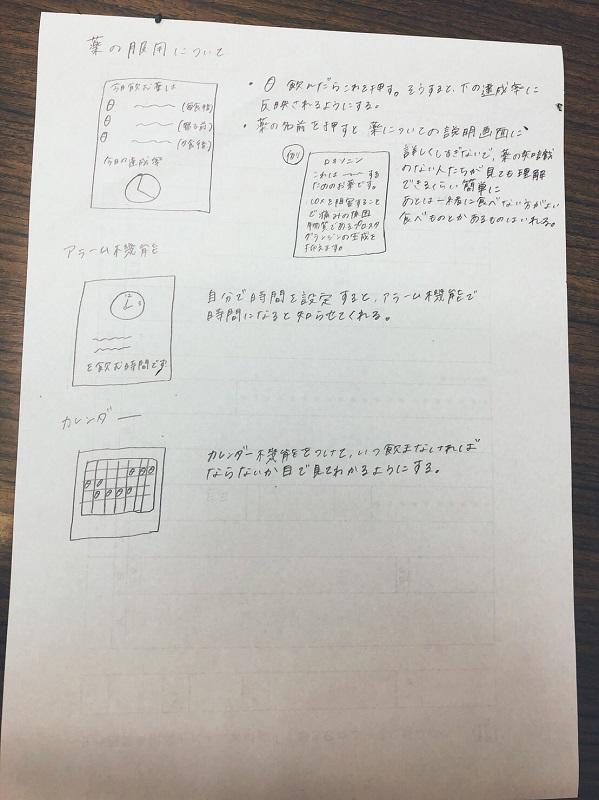 薬の服用について
今日飲むお薬は
(毎食後)
(寝る前)
(夕食後)
今日の達成率
・ 飲んだらこれを押す。そうすると、下の達成率に
反映されるようにする。
・薬の名前を押すと薬についての説明画面に
例)
ロキソニン
これは する
ためのお薬です。
COXを阻害すること
で痛みの原因
物質であるプロスタ
グランジンの生成を
抑えます。
詳しくしすぎないで、薬の知識
のない人たちが見ても理解
できるくらい簡単に
あとは一緒に食べない方がよい
食べものとかあるものはいれる。
アラーム機能を
12
3
を飲む時間です!
自分で時間を設定すると、アラーム機能で
時間になると知らせてくれる。
カレンダー
カレンダー機能をつけて、いつ飲まなければ
ならないか目で見てわかるようにする。